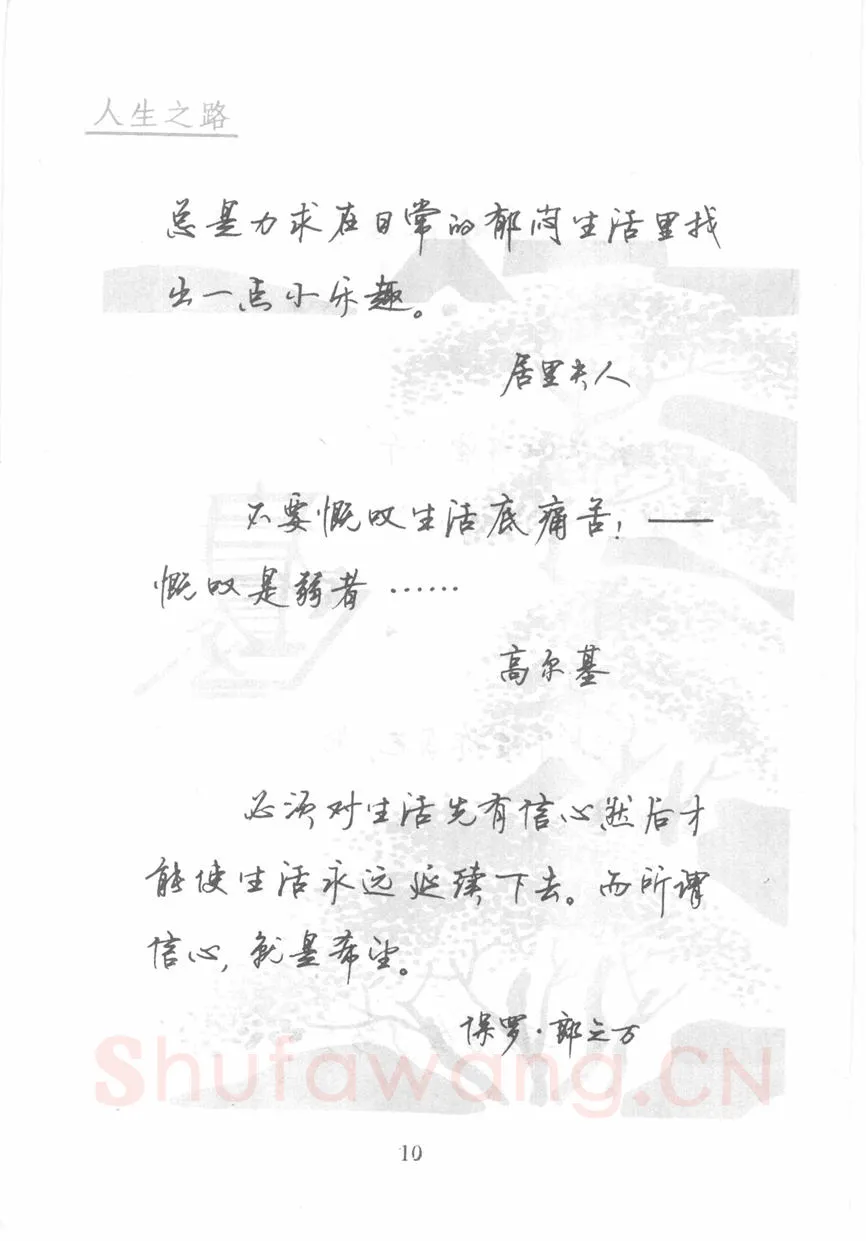 人生之路
总是力求在日常的郁闷生活里找
出一点小乐趣。
居里夫人
不要慨叹生活底痛苦！——
慨叹是弱者……
高尔基
必须对生活先有信心然后才
能使生活永远延续下去。而所谓
信心，就是希望。
保罗·郎之万
Shufawang.CN
10